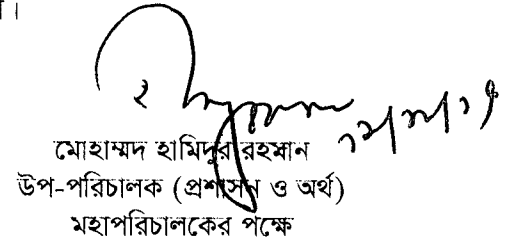 ।
মোহাম্মদ হামিদুর রহমান
উপ-পরিচালক (প্রশাসন ও অর্থ)
মহাপরিচালকের পক্ষে